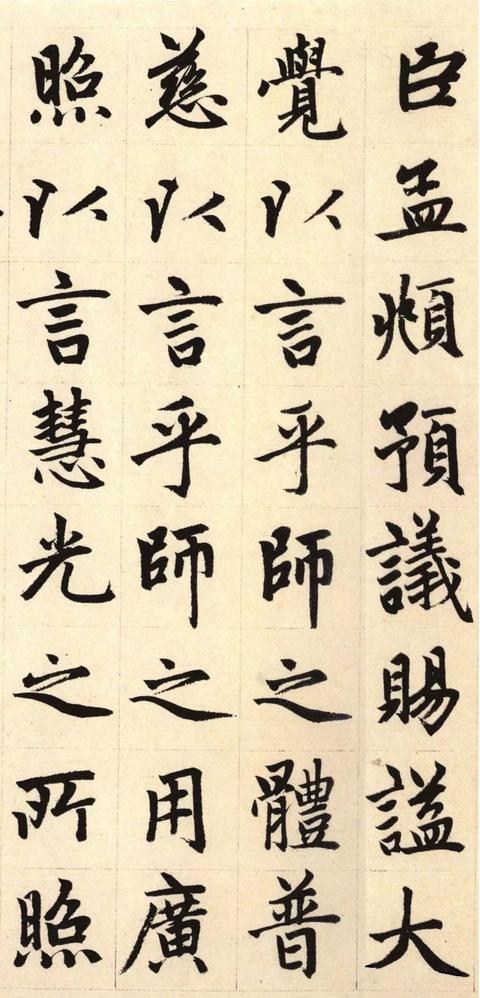 臣孟頫預議賜謚大
覺以言乎師之體普
慈以言乎師之用廣
照以言慧光之所照